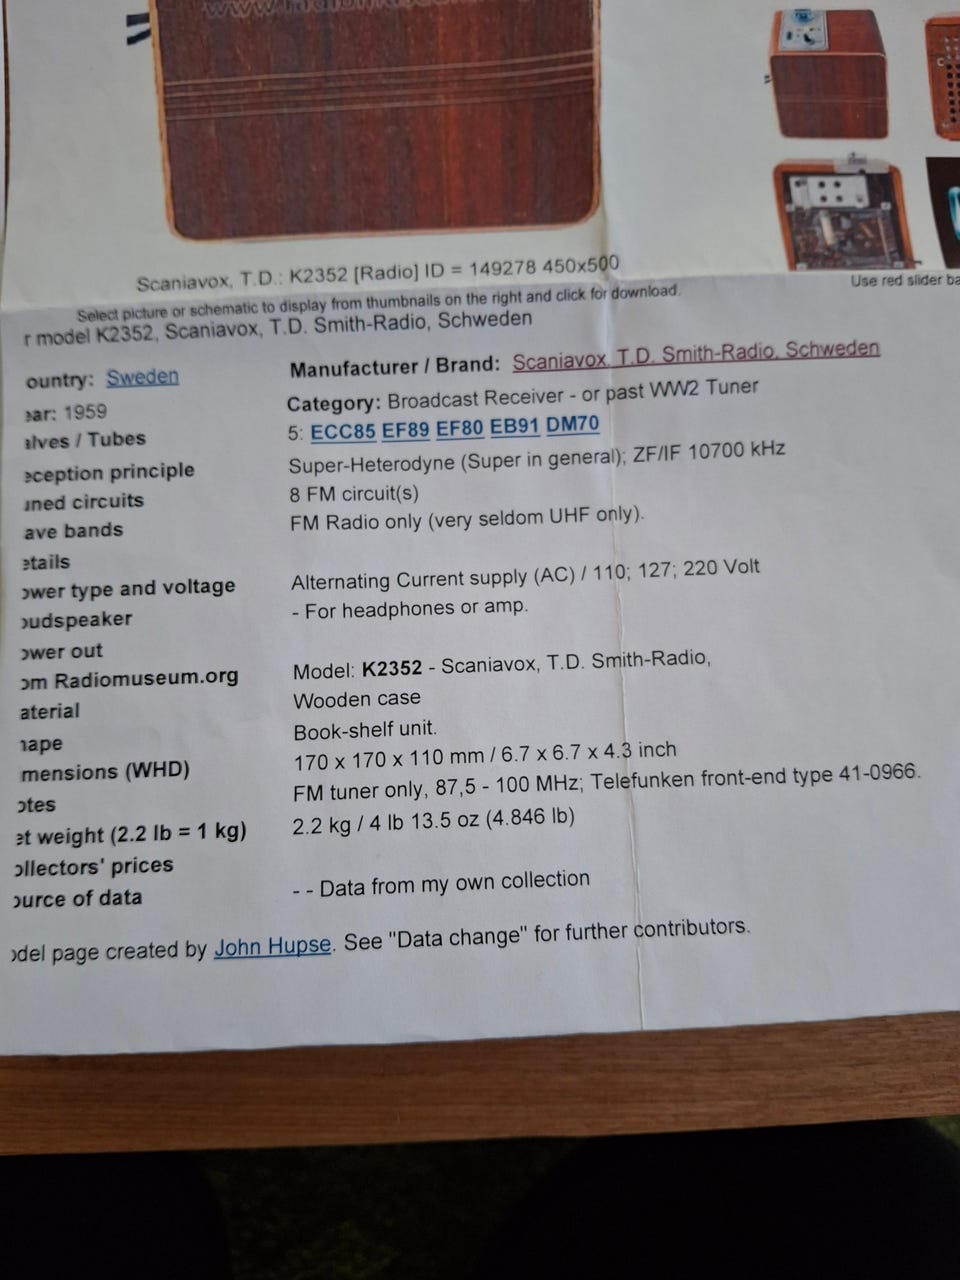 Scaniavox, T.D.: K2352 [Radio] ID = 149278 450x500
Use red slider ba
Select picture or schematic to display from thumbnails on the right and click for download.
r model K2352, Scaniavox, T.D. Smith-Radio, Schweden
ountry: Sweden
Manufacturer / Brand: Scaniavox, T.D. Smith-Radio, Schweden
ear: 1959
Category: Broadcast Receiver - or past WW2 Tuner
alves / Tubes
5: ECC85 EF89 EF80 EB91 DM70
eception principle
Super-Heterodyne (Super in general); ZF/IF 10700 kHz
uned circuits
8 FM circuit(s)
ave bands
FM Radio only (very seldom UHF only).
etails
ower type and voltage
Alternating Current supply (AC) / 110; 127; 220 Volt
oudspeaker
- For headphones or amp.
ower out
om Radiomuseum.org
Model: K2352 - Scaniavox, T.D. Smith-Radio,
aterial
Wooden case
hape
Book-shelf unit.
mensions (WHD)
170 x 170 x 110 mm / 6.7 x 6.7 x 4.3 inch
otes
FM tuner only, 87,5 - 100 MHz; Telefunken front-end type 41-0966.
et weight (2.2 lb = 1 kg)
2.2 kg / 4 lb 13.5 oz (4.846 lb)
ollectors' prices
ource of data
- - Data from my own collection
odel page created by John Hupse. See "Data change" for further contributors.